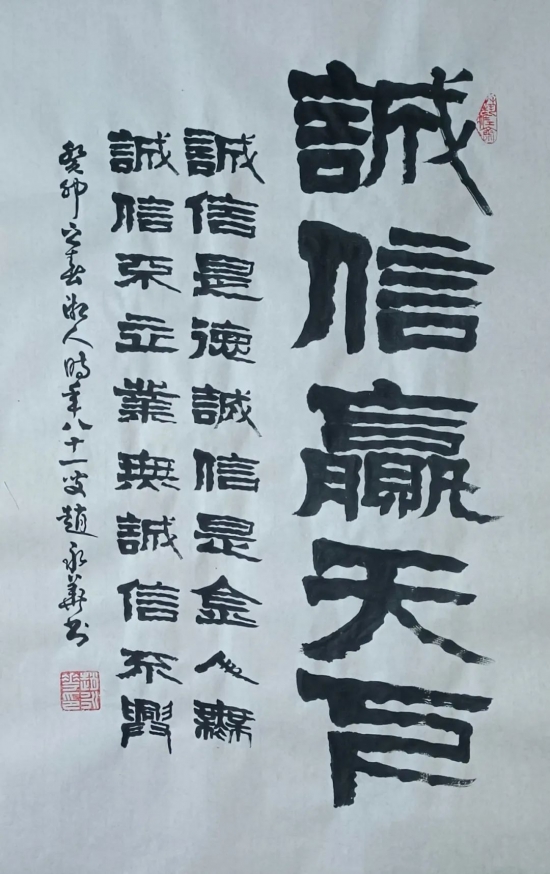 誠信贏天下
誠信是德誠信是金人無
誠信不立業無誠信不興
癸卯之春湘人時年八十一叟趙永華书